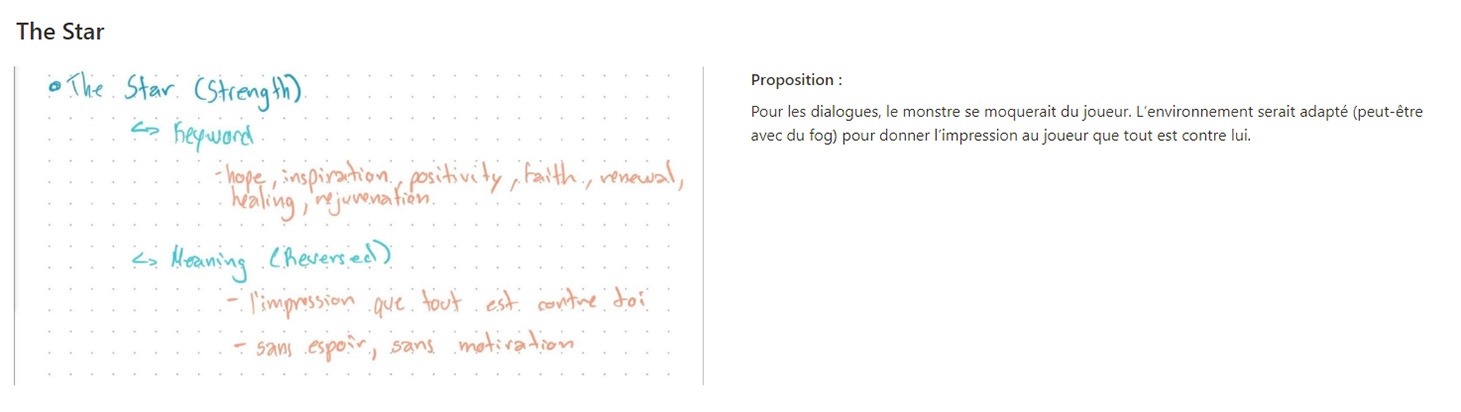 The Star
• The Star (Strength)
↪ Keyword
- hope, inspiration, positivity, faith, renewal,
healing, rejuvenation.
↪ Meaning (Reversed)
- l'impression que tout est contre toi
- sans espoir, sans motivation
Proposition :
Pour les dialogues, le monstre se moquerait du joueur. L'environnement serait adapté (peut-être
avec du fog) pour donner l'impression au joueur que tout est contre lui.